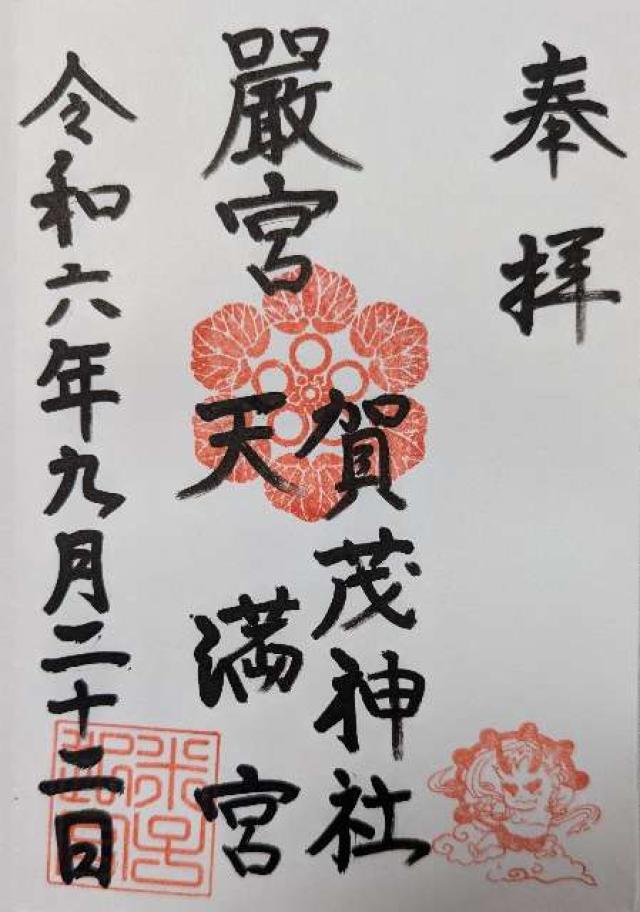 奉拝
嚴宮
賀茂神社
天満宮
令和六年九月二十二日